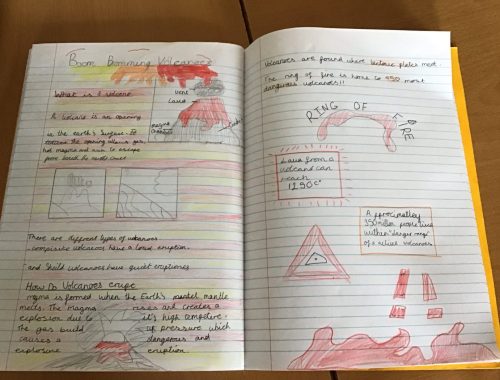 Boom Booming Volcanoes
What is a volcano
vent
Lava
magma
chamber
A Volcano is an opening
in the earth's surface. It
the opening allows gas,
hot magma and ash to escape
from beneath the earth's crust
There are different types of volcanoes
- composite volcanoes have a loud eruption.
and Shild volcanoes have quiet eruptions
How Do Volcanoes erupt
magma is formed when the Earth's mantel mantle
melts. The magma rises and creates a
explosion due to it's high tempetive.
The gas build up pressure which
causes a dangerous and
explosive eruption.
Volcanoes are found where tectonic plates meet.
The ring of fire is home to 450 most
dangerous volcanoes!!
RING OF FIRE
Lava from a
volcano can
reach
1250c°
Approximatley
350 million people live
within "danger range"
of a active volcanoes